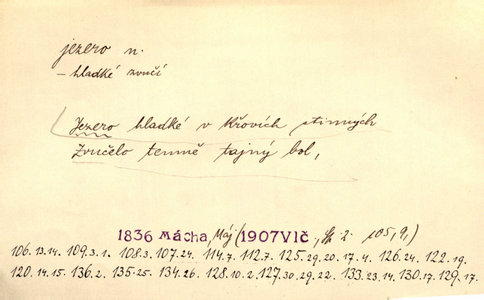 jezero n.
– hladké zvučí
Jezero hladké v křovích stinných
Zvučelo temně tajný bol,
1836 Mácha, Máj (1907 Vlč, 2. 105, 9.)
106. 13. 14. 109. 3. 1. 108. 3. 107. 24. 114. 7. 112. 7. 125. 29. 20. 17. 4. 126. 24. 122. 19.
120. 14. 15. 136. 2. 135. 25. 134. 26. 128. 10. 2. 127. 30. 29. 22. 133. 23. 14. 130. 17. 129. 17.